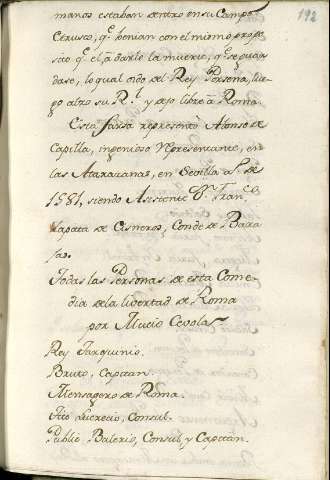 192
manos estaban dentro en su Campo
Cerusco, q.e benian con el mismo propo-
sito q.e el, a darle la muerte, q.e se guar
dase, lo qual oido del Rey Porsena, lue-
go alzo su R.l y dejo libre à Roma.
Esta farsa representò Alonso de
Capilla, ingenioso representante, en
las Atarazanas, en Sevilla a.o de
1581, siendo Asistente D.n Fran.co
Zapata de Cisneros, Conde de Bara
jas.
Todas las Personas de esta Come-
dia de la libertad de Roma
por Mucio Cevola
Rey Tarquinio.
Bruto, Capitan.
Mensagero de Roma.
Tito Lucrecio, Consul.
Publio Balerio, Consul, y Capitan.